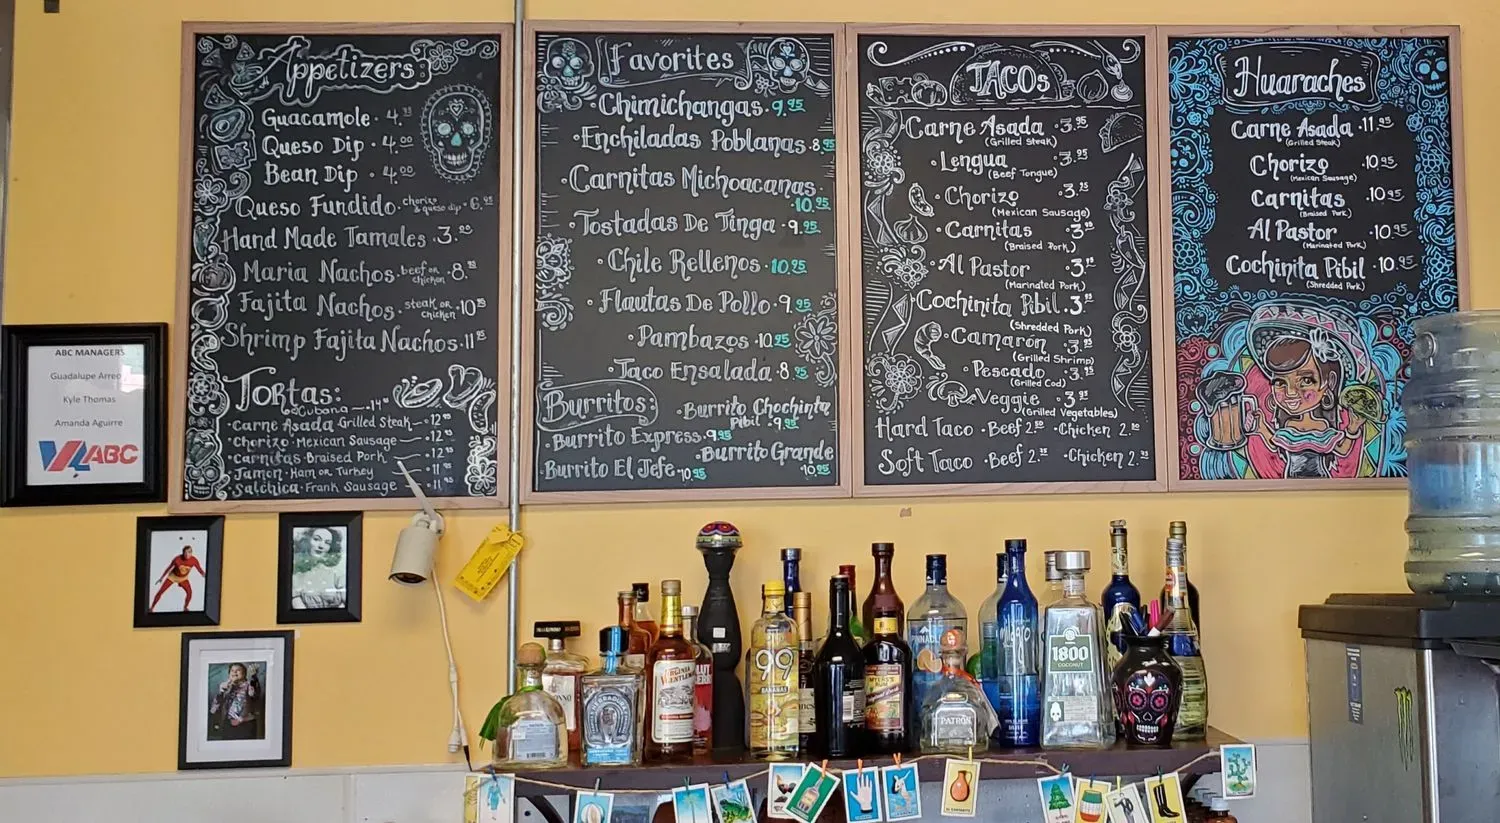 Appetizers:
Guacamole · 4.
Queso Dip · 4.00
Bean Dip · 4.00
Queso Fundido · chorizo & queso dip · 6.95
Hand Made Tamales · 3.
Maria Nachos · beef or chicken · 8.
Fajita Nachos · steak or chicken · 10
Shrimp Fajita Nachos · 11
Tortas:
Cubana
· Carne Asada Grilled Steak — 12
· Chorizo · Mexican Sausage — 12
· Carnitas · Braised Pork — 12
· Jamon · Ham or Turkey
· Salchica · Frank Sausage
Favorites
· Chimichangas · 9.95
· Enchiladas Poblanas · 8.95
· Carnitas Michoacanas · 10.95
· Tostadas De Tinga · 9.95
· Chile Rellenos · 10.95
· Flautas De Pollo · 9.95
· Pambazos · 10.25
· Taco Ensalada · 8.95
Burritos:
· Burrito Chochinta Pibil · 9.95
· Burrito Express · 9.95
· Burrito Grande 10.95
· Burrito El Jefe · 10.95
TACOs
· Carne Asada · 3.95
(Grilled Steak)
· Lengua · 3.95
(Beef Tongue)
· Chorizo · 3.
(Mexican Sausage)
· Carnitas · 3.
(Braised Pork)
· Al Pastor · 3.
(Marinated Pork)
· Cochinita Pibil · 3.
(Shredded Pork)
· Camarón · 3.95
(Grilled Shrimp)
· Pescado · 3.
(Grilled Cod)
· Veggie · 3.95
(Grilled Vegetables)
Hard Taco · Beef 2. · Chicken 2.
Soft Taco · Beef 2. · Chicken 2.
Huaraches
Carne Asada · 11.95
(Grilled Steak)
Chorizo · 10.95
(Mexican Sausage)
Carnitas · 10.95
(Braised Pork)
Al Pastor · 10.95
(Marinated Pork)
Cochinita Pibil · 10.95
(Shredded Pork)
ABC MANAGERS
Guadalupe Arreo
Kyle Thomas
Amanda Aguirre
VALABC
VIRGINIA GENTLEMAN
99
BANANAS
MYERS'S
PINNACLE
PATRÓN
milagro
1800
COCONUT